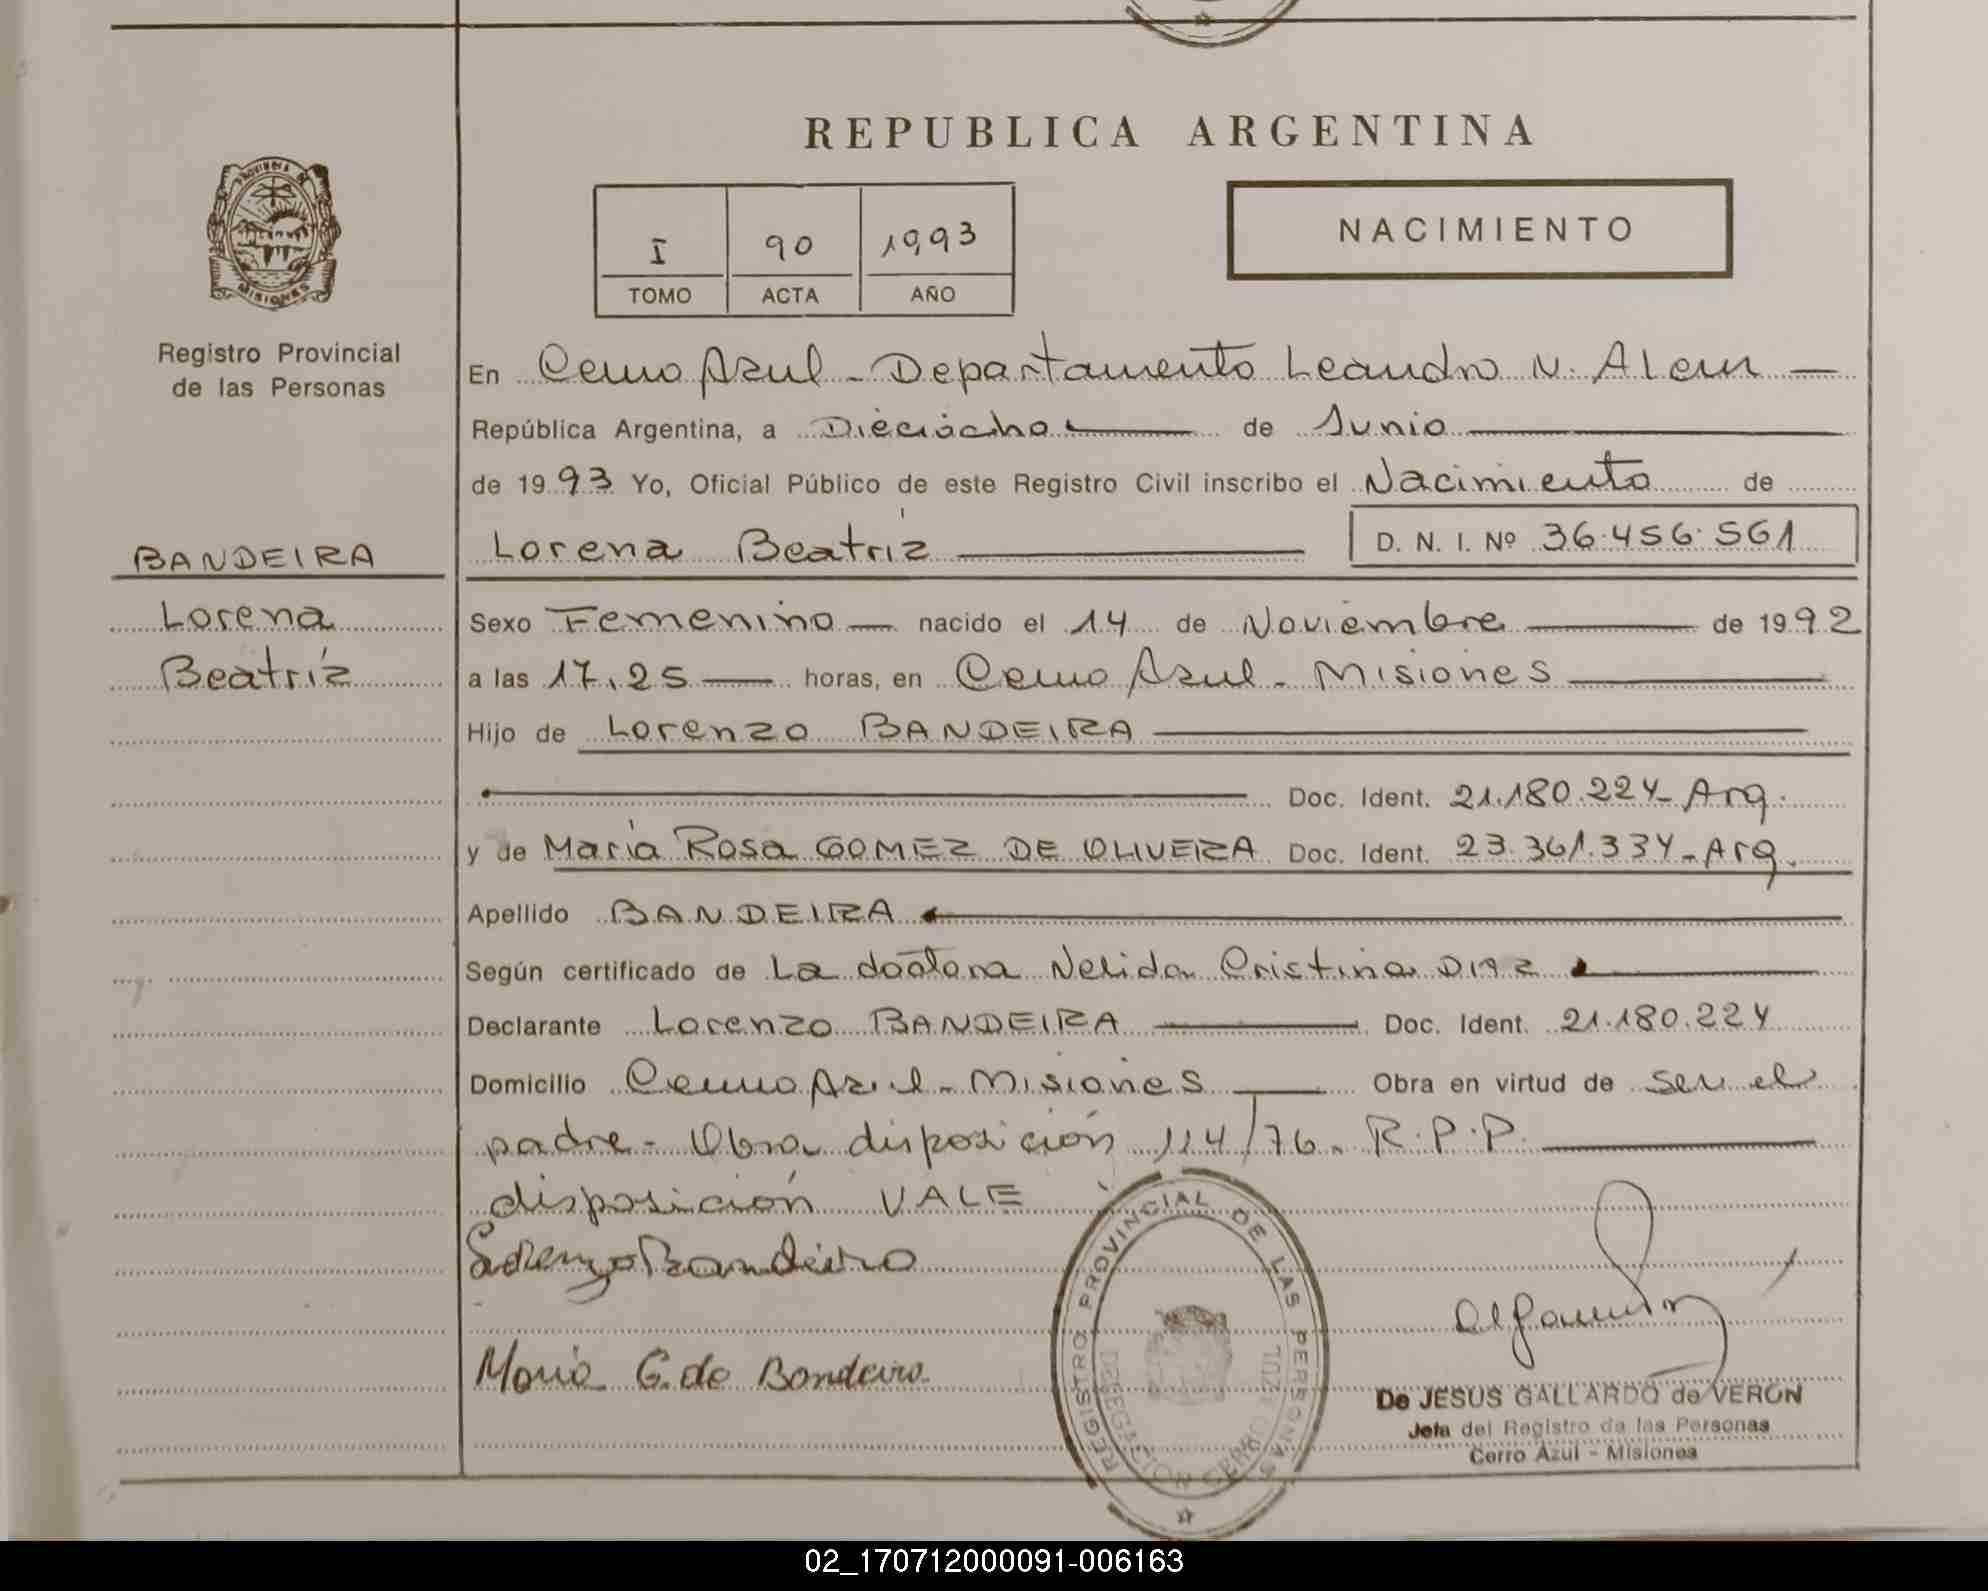 REPUBLICA ARGENTINA
PROVINCIA DE
MISIONES
I 90 1993
TOMO ACTA AÑO
NACIMIENTO
Registro Provincial
de las Personas
En Cerro Azul - Departamento Leandro N. Alem
República Argentina, a Dieciocho de Junio
de 1993 Yo, Oficial Público de este Registro Civil inscribo el Nacimiento de
Lorena Beatriz D. N. I. Nº 36.456.561
BANDEIRA
Lorena
Beatriz
Sexo Femenino nacido el 14 de Noviembre de 1992
a las 17,25 horas, en Cerro Azul - Misiones
Hijo de Lorenzo BANDEIRA
Doc. Ident. 21.180.224 - Arg.
y de María Rosa GOMEZ DE OLIVEIRA Doc. Ident. 23.361.334 - Arg.
Apellido BANDEIRA
Según certificado de La doctora Nelida Cristina DIAZ
Declarante Lorenzo BANDEIRA Doc. Ident. 21.180.224
Domicilio Cerro Azul - Misiones Obra en virtud de ser el
padre - Obra disposición 114/76. R.P.P.
disposición VALE
Lorenzo Bandeira
Maria G. de Bandeira
REGISTRO PROVINCIAL DE LAS PERSONAS
DELEGACION CERRO AZUL
De JESUS GALLARDO de VERON
Jefa del Registro de las Personas
Cerro Azul - Misiones
02_170712000091-006163